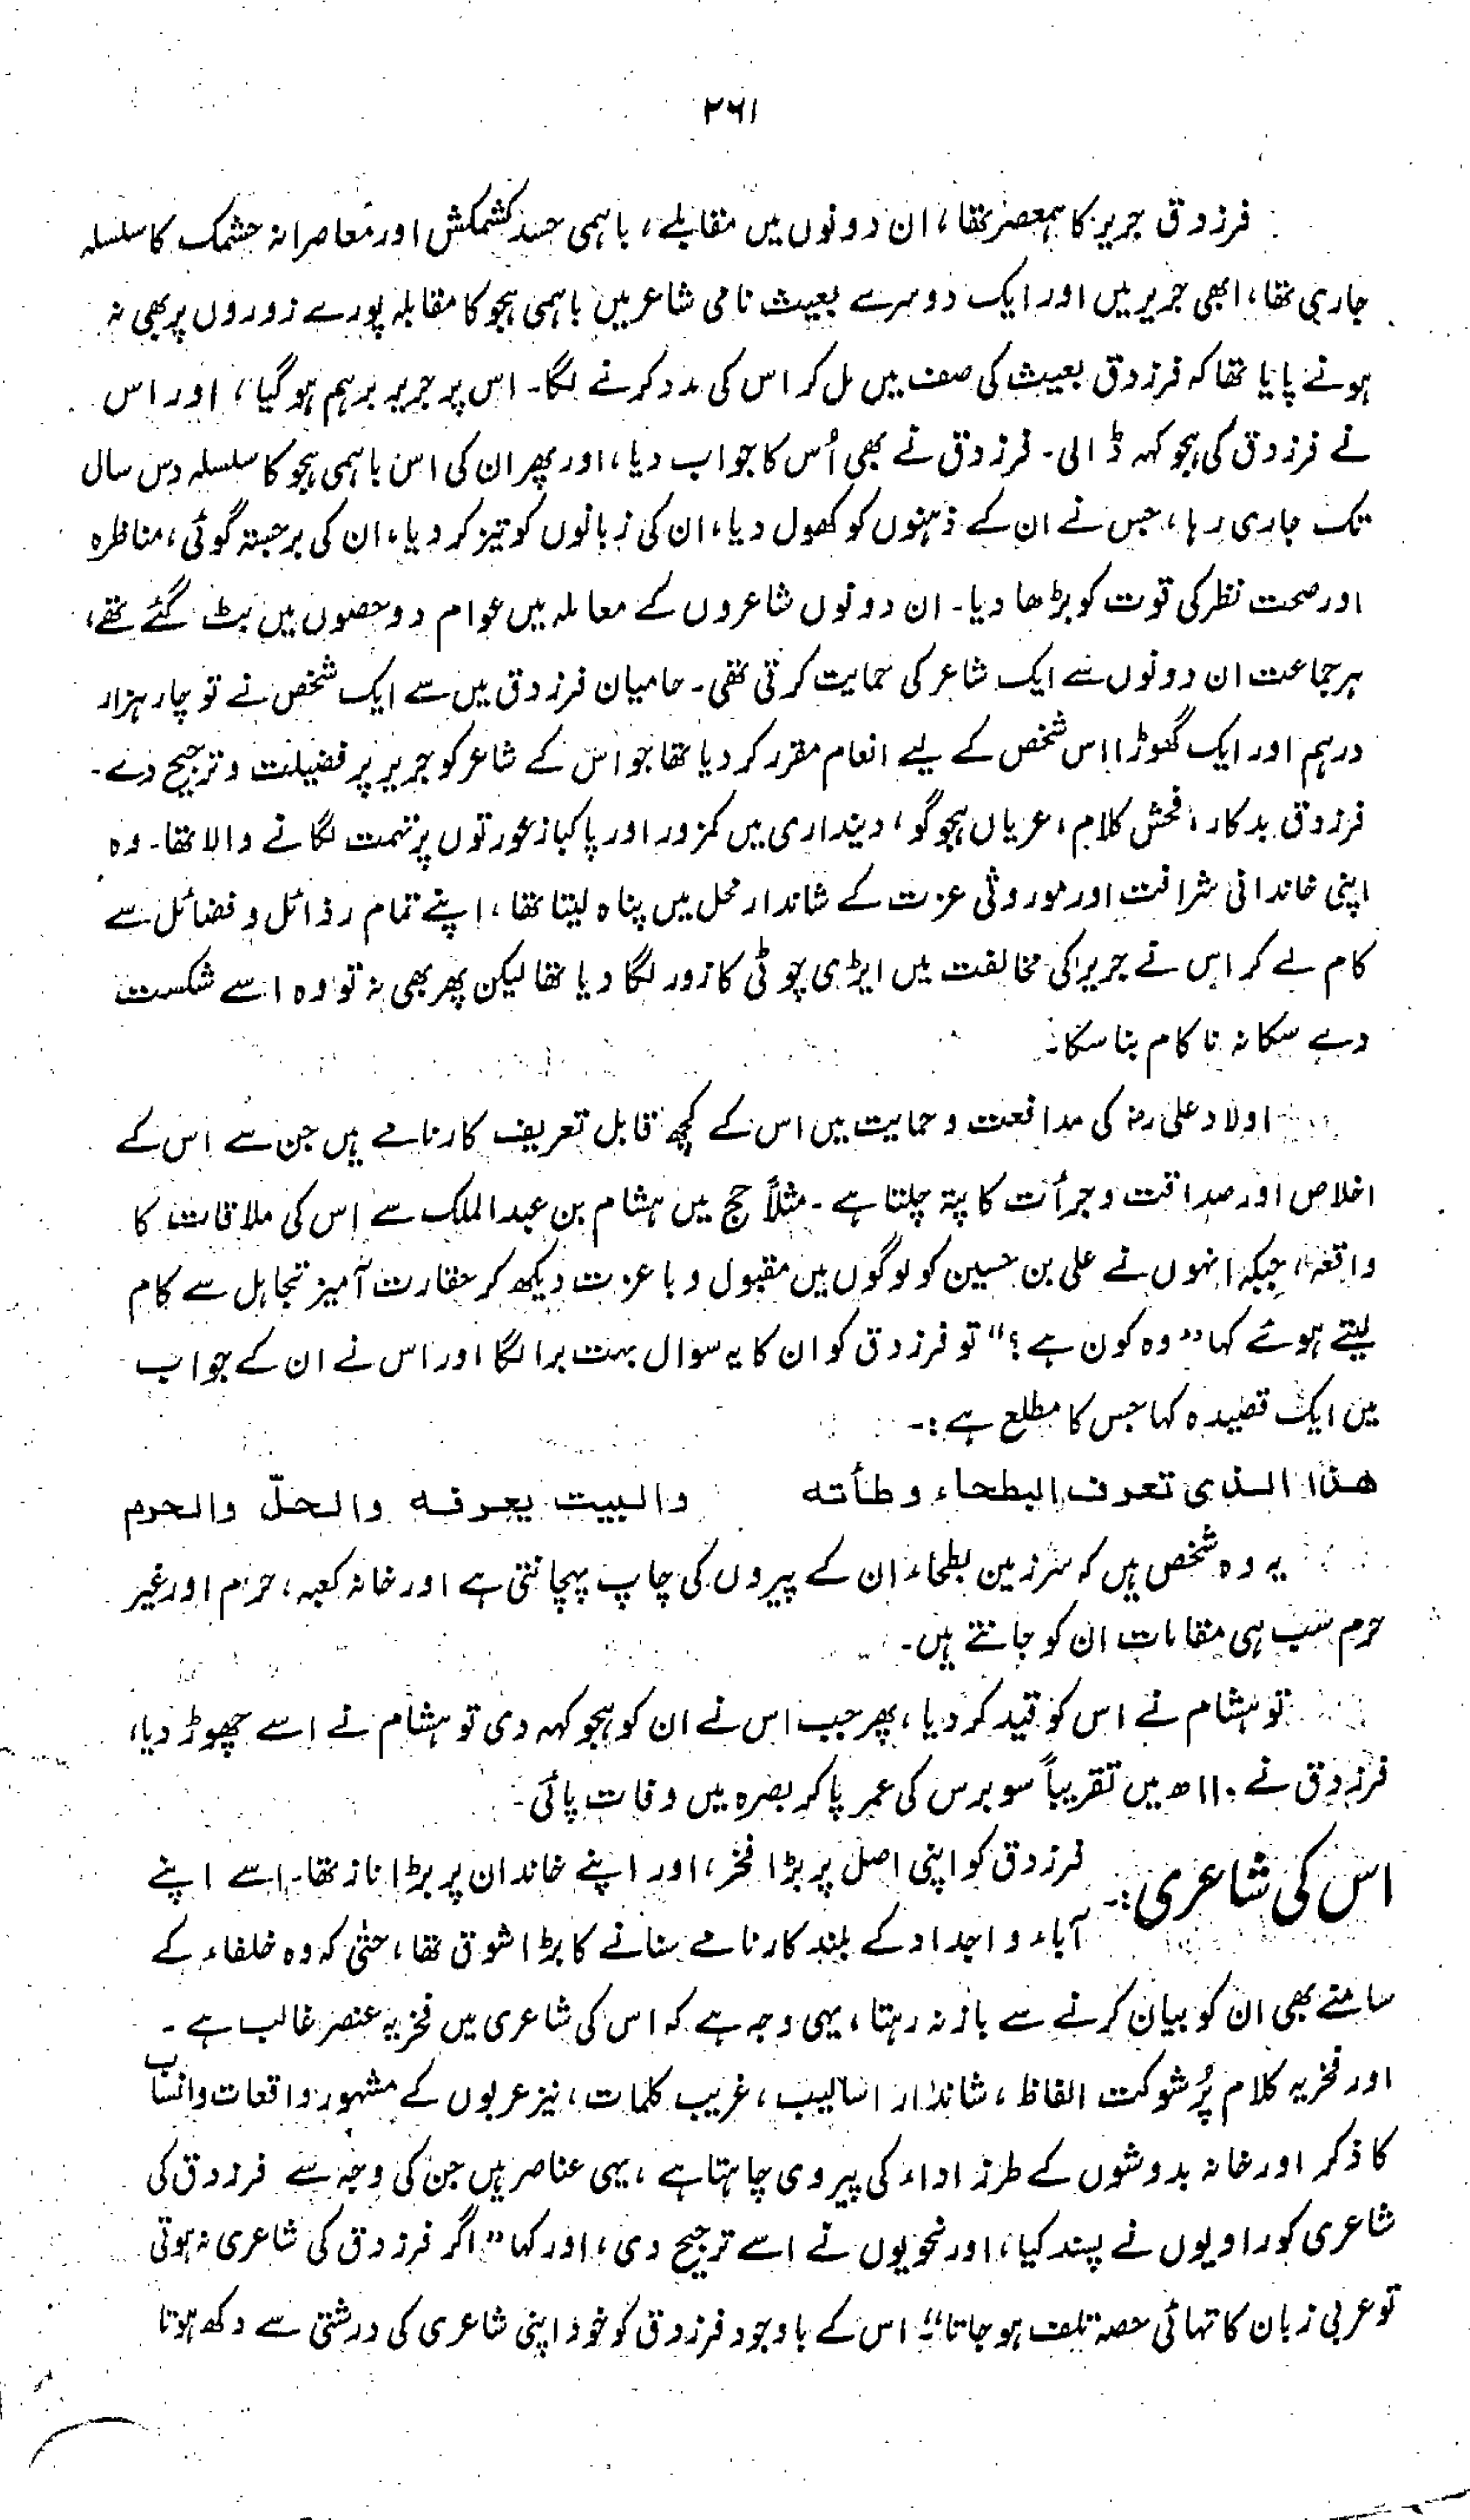 ۲۶۱
فرزدق جریر کا ہمعصر تھا، ان دونوں میں مقابلے، باہمی حسد کشمکش اور معاصرانہ چشمک کا سلسلہ
جاری تھا، ابھی جریر میں اور ایک دوسرے بعیث نامی شاعر میں باہمی ہجو کا مقابلہ پورے زوروں پر بھی نہ
ہونے پایا تھا کہ فرزدق بعیث کی صف میں مل کر اس کی مدد کرنے لگا۔ اس پر جریر برہم ہو گیا، اور اس
نے فرزدق کی ہجو کہہ ڈالی۔ فرزدق نے بھی اُس کا جواب دیا، اور پھر ان کی اس باہمی ہجو کا سلسلہ دس سال
تک جاری رہا، جس نے ان کے ذہنوں کو کھول دیا، ان کی زبانوں کو تیز کر دیا، ان کی برجستہ گوئی، مناظرہ
اور صحت نظر کی قوت کو بڑھا دیا۔ ان دونوں شاعروں کے معاملہ میں عوام دو حصوں میں بٹ گئے تھے،
ہر جماعت ان دونوں سے ایک شاعر کی حمایت کرتی تھی۔ حامیان فرزدق میں سے ایک شخص نے تو چار ہزار
درہم اور ایک گھوڑا اس شخص کے لیے انعام مقرر کر دیا تھا جو اس کے شاعر کو جریر پر فضیلت و ترجیح دے۔
فرزدق بدکار، فحش کلام، عریاں ہجو گو، دینداری میں کمزور اور پاکباز عورتوں پر تہمت لگانے والا تھا۔ وہ
اپنی خاندانی شرافت اور موروثی عزت کے شاندار محل میں پناہ لیتا تھا، اپنے تمام رذائل و فضائل سے
کام لے کر اس نے جریر کی مخالفت میں ایڑی چوٹی کا زور لگا دیا تھا لیکن پھر بھی نہ تو وہ اسے شکست
دے سکا نہ ناکام بنا سکا۔
اولاد علی رضؓ کی مدافعت و حمایت میں اس کے کچھ قابل تعریف کارنامے ہیں جن سے اس کے
اخلاص اور صداقت و جرأت کا پتہ چلتا ہے۔ مثلاً حج میں ہشام بن عبدالملک سے اس کی ملاقات کا
واقعہ، جبکہ انہوں نے علی بن حسین کو لوگوں میں مقبول و با عزت دیکھ کر حقارت آمیز تجاہل سے کام
لیتے ہوئے کہا "وہ کون ہے؟" تو فرزدق کو ان کا یہ سوال بہت برا لگا اور اس نے ان کے جواب
میں ایک قصیدہ کہا جس کا مطلع ہے:۔
هذا الذی تعرف البطحاء وطأته والبیت یعرفه والحلّ والحرم
یہ وہ شخص ہیں کہ سرزمین بطحاء ان کے پیروں کی چاپ پہچانتی ہے اور خانہ کعبہ، حرم اور غیر
حرم سب ہی مقامات ان کو جانتے ہیں۔
تو ہشام نے اس کو قید کر دیا، پھر جب اس نے ان کو ہجو کہہ دی تو ہشام نے اسے چھوڑ دیا،
فرزدق نے ۱۱۰ھ میں تقریباً سو برس کی عمر پا کر بصرہ میں وفات پائی۔
اس کی شاعری:۔ فرزدق کو اپنی اصل پر بڑا فخر، اور اپنے خاندان پر بڑا ناز تھا۔ اسے اپنے
آباء و اجداد کے بلند کارنامے سنانے کا بڑا شوق تھا، حتیٰ کہ وہ خلفاء کے
سامنے بھی ان کو بیان کرنے سے باز نہ رہتا، یہی وجہ ہے کہ اس کی شاعری میں فخریہ عنصر غالب ہے۔
اور فخریہ کلام پُرشوکت الفاظ، شاندار اسالیب، غریب کلمات، نیز عربوں کے مشہور واقعات وانساب
کا ذکر اور خانہ بدوشوں کے طرز اداء کی پیروی چاہتا ہے، یہی عناصر ہیں جن کی وجہ سے فرزدق کی
شاعری کو راویوں نے پسند کیا، اور نحویوں نے اسے ترجیح دی، اور کہا "اگر فرزدق کی شاعری نہ ہوتی
تو عربی زبان کا تہائی حصہ تلف ہو جاتا"۔ اس کے باوجود فرزدق کو خود اپنی شاعری کی درشتی سے دکھ ہوتا